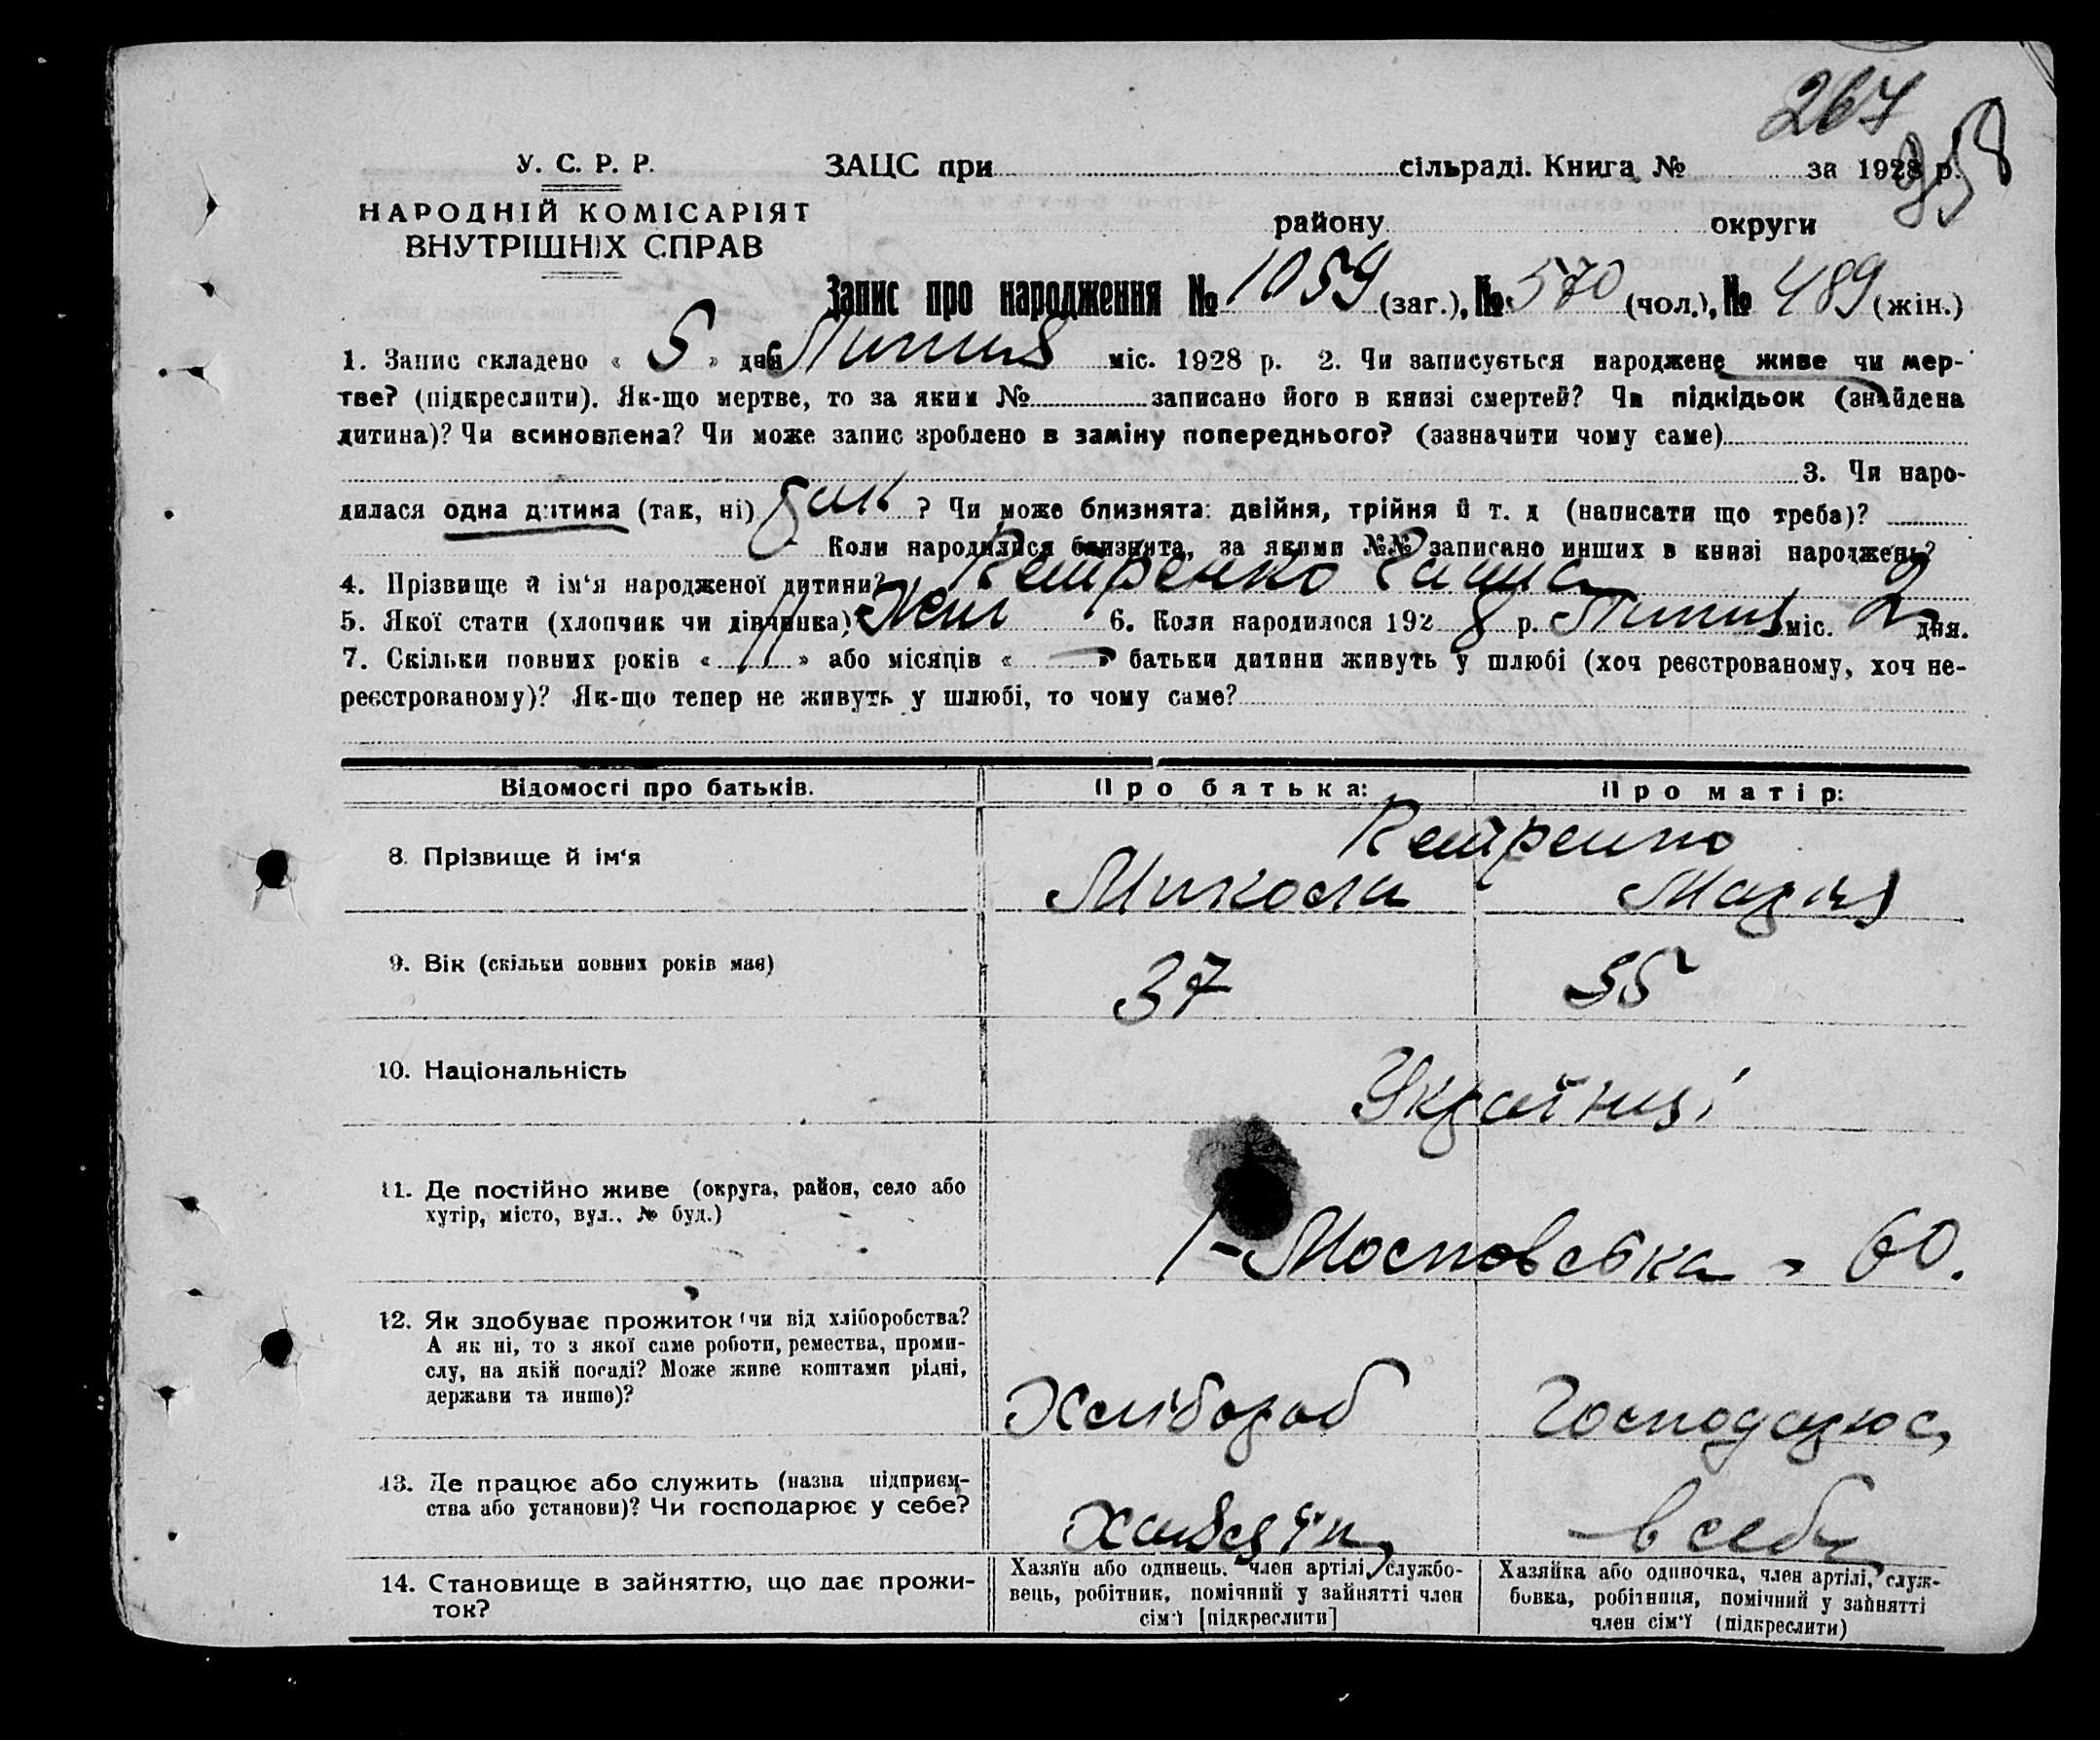 267
358
У. С. Р. Р.
НАРОДНІЙ КОМІСАРІЯТ
ВНУТРІШНІХ СПРАВ
ЗАЦС при сільраді. Книга № за 1928 р.
району округи
Запис про народження № 1059 (заг.), № 570 (чол.), № 489 (жін.)
1. Запис складено « 5 » дня Липня міс. 1928 р. 2. Чи записується народжене живе чи мер-
тве? (підкреслити). Як-що мертве, то за яким № записано його в книзі смертей? Чи підкідьок (знайдена
дитина)? Чи всиновлена? Чи може запис зроблено в заміну попереднього? (зазначити чому саме)
3. Чи наро-
дилася одна дитина (так, ні) так ? Чи може близнята: двійня, трійня й т. д (написати що треба)?
Коли народилися близнята, за якими №№ записано инших в книзі народжень?
4. Прізвище й ім‘я народженої дитини? Петренко
5. Якої стати (хлопчик чи дівчинка) Жін 6. Коли народилося 192 8 р. Липня міс. 2 дня.
7. Скільки повних років « 11 » або місяців « — » батьки дитини живуть у шлюбі (хоч реєстрованому, хоч не-
реєстрованому)? Як-що тепер не живуть у шлюбі, то чому саме?
Відомості про батьків. Про батька: Про матір:
8. Прізвище й ім‘я Петренко
Микола Марія
9. Вік (скільки повних років має) 37 35
10. Національність Українці
11. Де постійно живе (округа, район, село або
хутір, місто, вул.. № буд.)
1-Московська - 60.
12. Як здобуває прожиток (чи від хліборобства?
А як ні, то з якої саме роботи, ремества, проми-
слу, на якій посаді? Може живе коштами рідні,
держави та инше)?
Хлібороб Господарює
13. Де працює або служить (назва підприєм-
ства або установи)? Чи господарює у себе?
в себе
14. Становище в зайняттю, що дає прожи-
ток?
Хазяїн або одинець, член артілі, службо-
вець, робітник, помічний у зайнятті член
сім‘ї [підкреслити]
Хазяйка або одиночка, член артілі, служ-
бовка, робітниця, помічний у зайнятті
член сім‘ї (підкреслити)